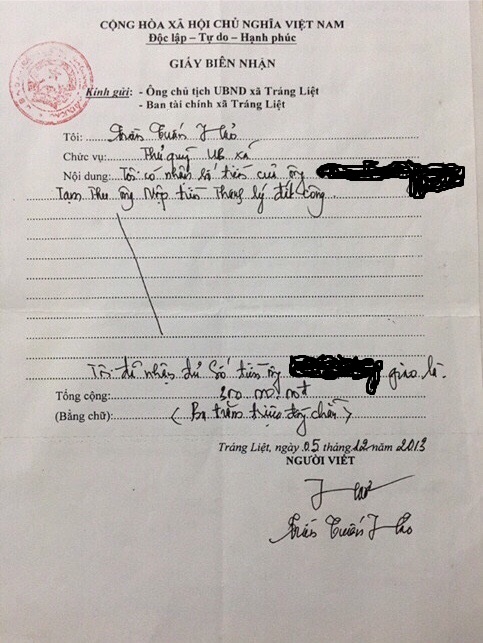 CỘNG HÒA XÃ HỘI CHỦ NGHĨA VIỆT NAM
Độc lập – Tự do – Hạnh phúc
GIẤY BIÊN NHẬN
Kính gửi: - Ông chủ tịch UBND xã Tráng Liệt
- Ban tài chính xã Tráng Liệt
Tôi: Trần Tuấn
Chức vụ: Thủ quỹ UB xã
Nội dung: Tôi có nhận số tiền của ông
Tạm thu ông nộp tiền thanh lý đất công
Tôi đã nhận đủ số tiền ông giao là.
Tổng cộng: 300.000.000đ
(Bằng chữ): (Ba trăm triệu đồng chẵn)
Tráng Liệt, ngày 05 tháng 12 năm 2013
NGƯỜI VIẾT
Trần Tuấn